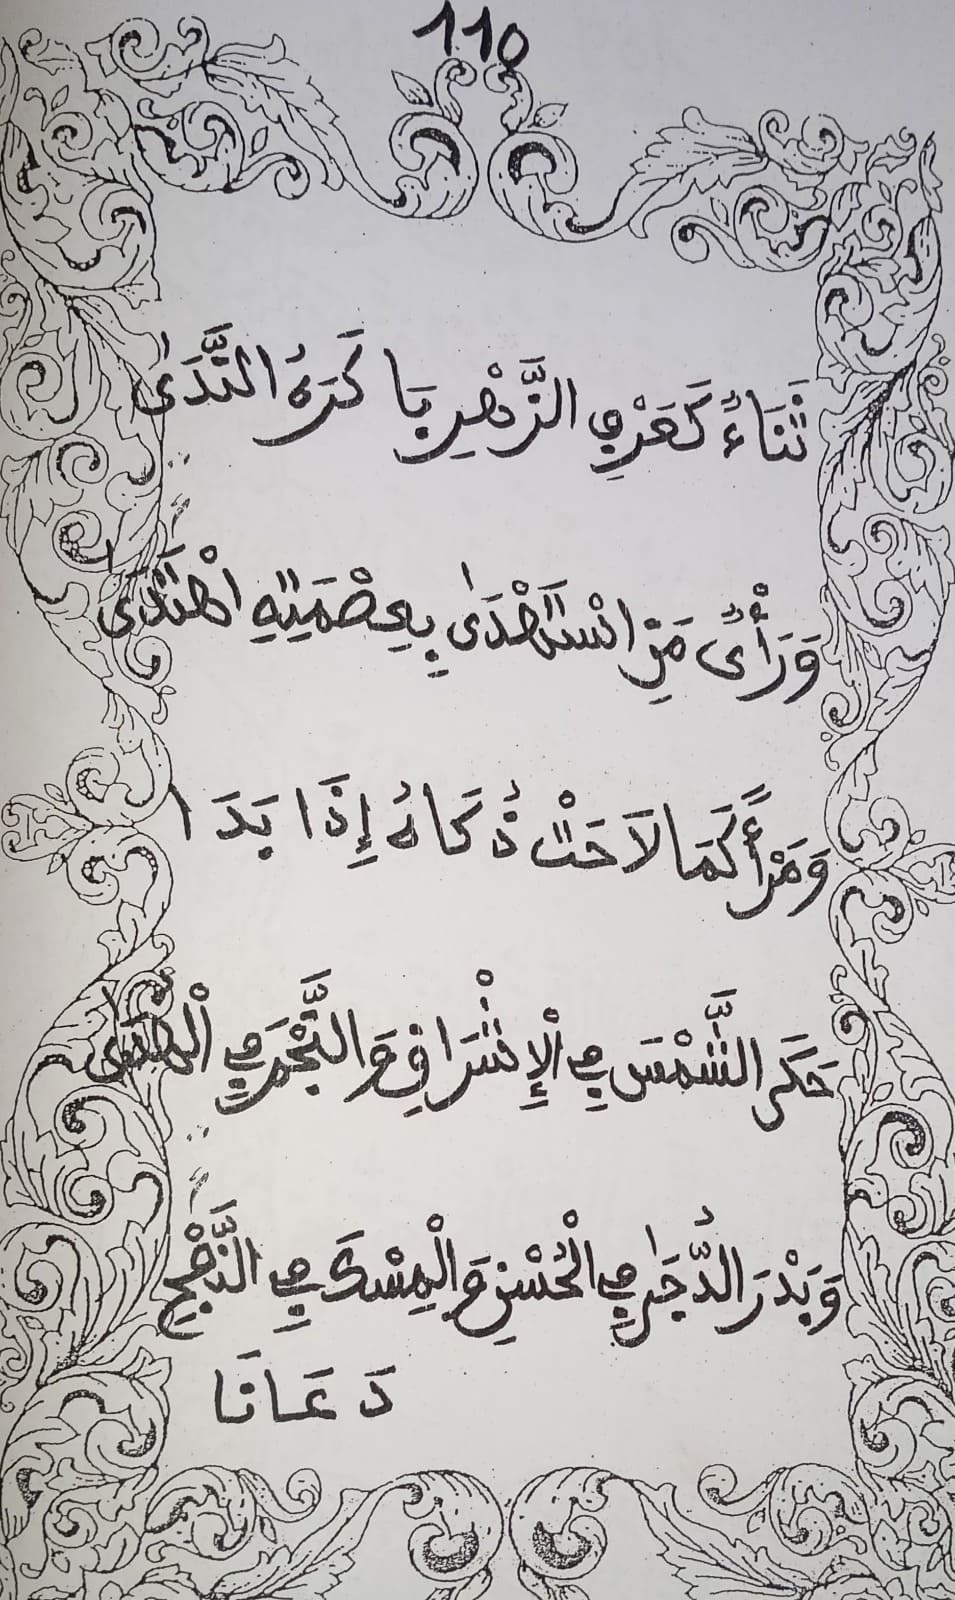 110
ثَنَاءٌ كَعَرْفِ الزَّهْرِ بَاكَرَهُ النَّدَى
وَرَأْيٌ مَنِ اسْتَهْدَى بِعِصْمَتِهِ اهْتَدَى
وَمَرْأً كَمَا لَاحَتْ ذُكَاءُ إِذَا بَدَا
حَكَى الشَّمْسَ فِي الْإِشْرَاقِ وَالنَّجْمَ فِي الْهُدَى
وَبَدْرَ الدُّجَى فِي الْحُسْنِ وَالْمِسْكَ فِي النَّفْحِ
دَعَانَا